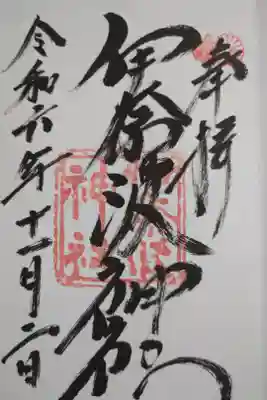 奉拝
伊奈波神社
神社
令和六年十一月二日